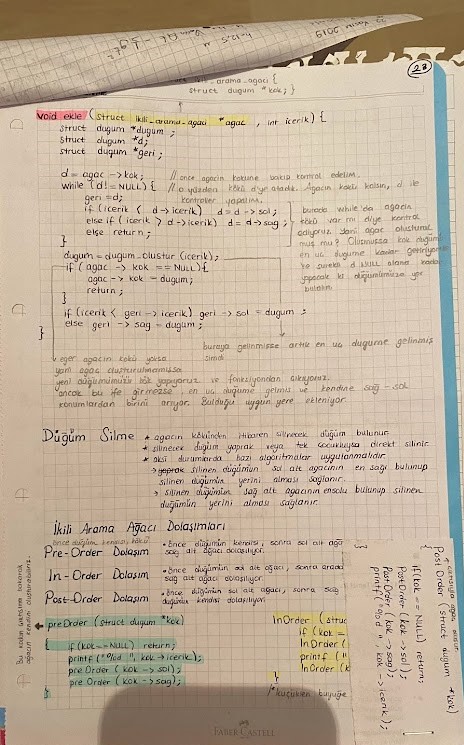 22 Kasım 2019
(23)
ikili_arama_agaci {
struct dugum *kok; }
void ekle (struct ikili_arama_agaci *agac, int icerik) {
struct dugum *dugum;
struct dugum *d;
struct dugum *geri;
d = agac -> kok; // once agacin kokune bakip kontrol edelim.
while (d != NULL) { // o yüzden kökü d'ye atadık. Ağacın kökü kalsın, d ile
geri = d; kontroller yapalım.
if (icerik < d -> icerik) d = d -> sol;
else if (icerik > d -> icerik) d = d -> sag;
else return;
}
burada while'da agacin
kökü var mı diye kontrol
ediyoruz. Yani agac oluşturul
muş mu? Olusmussa kok düğüm
en uc dugume kadar getiriyoruz
ve surekli d NULL olana kadar
yapacak ki düğümümüze yer
bulalım
dugum = dugum_olustur (icerik);
if (agac -> kok == NULL) {
agac -> kok = dugum;
return;
}
if (icerik < geri -> icerik) geri -> sol = dugum;
else geri -> sag = dugum;
}
buraya gelinmisse artik en uc dugume gelinmis
simdi
eger agacin kökü yoksa
yani agac olusturulmamissa
yeni düğümümüzü kök yapıyoruz ve fonksiyondan cikiyoruz.
ancak bu ife girmezse, en uc düğüme gelmis ve kendine sağ-sol
konumlardan birini arıyor. Bulduğu uygun yere ekleniyor.
Düğüm Silme
* agacın kökünden itibaren silinecek düğüm bulunur.
* silinecek düğüm yaprak veya tek cocukluysa direkt silinir.
* aksi durumlarda bazı algoritmalar uygulanmalıdır.
→ yaprak silinen düğümün sol alt ağacının en sağı bulunup
silinen düğümün yerini alması sağlanır.
→ silinen düğümün sağ alt ağacının ensolu bulunup silinen
düğümün yerini alması sağlanır.
İkili Arama Ağacı Dolaşımları
önce düğüm kendisi, kökü
Pre-Order Dolaşım • önce düğümün kendisi, sonra sol alt ağa
sağ alt ağacı dolaşılıyor.
In-Order Dolaşım • Önce düğümün sol alt ağacı, sonra
sağ alt ağacı dolaşılıyor.
Post-Order Dolaşım • önce düğümün sol alt ağacı, sonra sağ
düğümün kendisi dolaşılıyor.
preOrder (struct dugum *kok)
{ if(kok == NULL) return;
printf("%d ", kok->icerik);
preOrder (kok -> sol);
preOrder (kok -> sag);
}
InOrder (struc
if (kok =
InOrder (
printf ("
InOrder (k
}
/* küçükten büyüğe
PostOrder (struct dugum *kok)
{
if(kok == NULL) return;
PostOrder (kok -> sol);
PostOrder (kok -> sag);
printf("%d ", kok -> icerik);
}
FABER-CASTELL